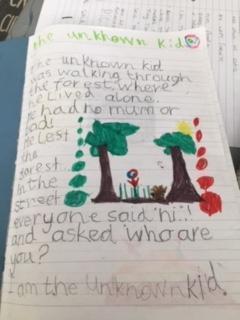 the unknown kid
The unknown kid
was walking through
the forest, where
he lived alone.
He had no mum or
Dad!
He Lest
the
forest...
In the
street
everyone said 'hi'!!
and asked who are
you?
I am the unknown kid!